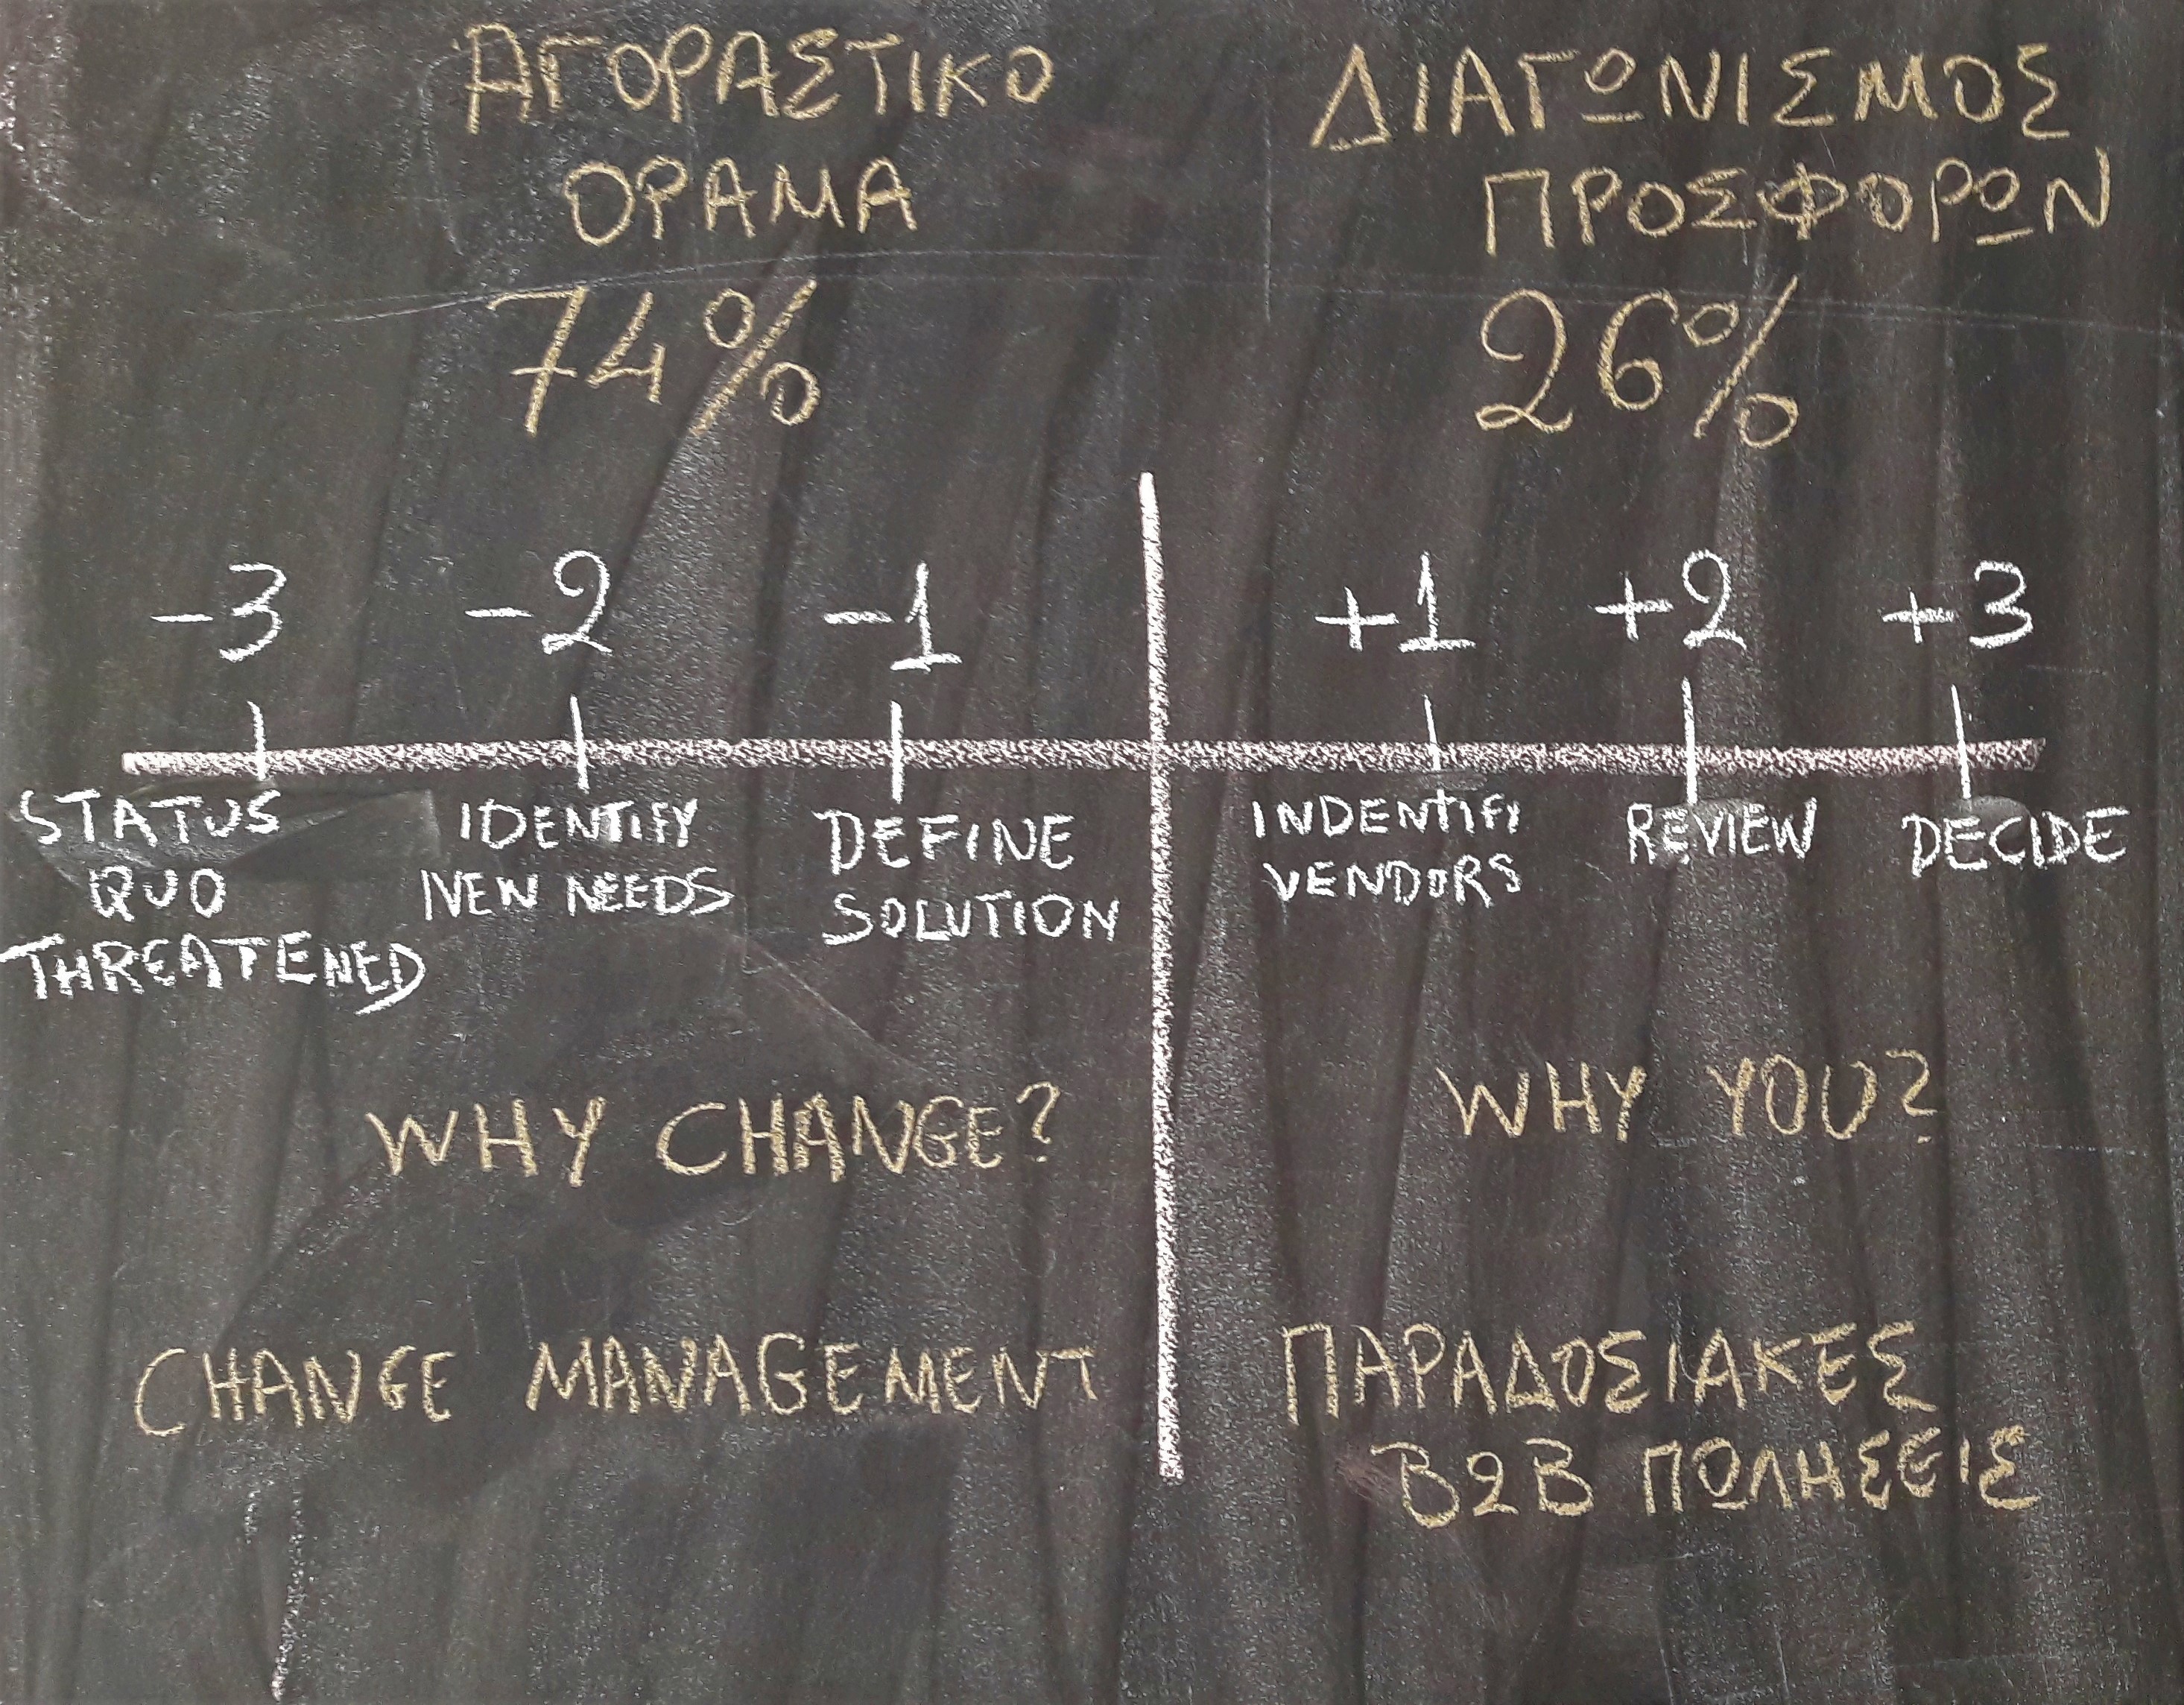 ΑΓΟΡΑΣΤΙΚΟ
ΟΡΑΜΑ
74%
ΔΙΑΓΩΝΙΣΜΟΣ
ΠΡΟΣΦΟΡΩΝ
26%
-3
-2
-1
+1
+2
+3
STATUS
QUO
THREATENED
IDENTIFY
NEW NEEDS
DEFINE
SOLUTION
INDENTIFY
VENDORS
REVIEW
DECIDE
WHY CHANGE?
WHY YOU?
CHANGE MANAGEMENT
ΠΑΡΑΔΟΣΙΑΚΕΣ
B2B ΠΩΛΗΣΕΙΣ